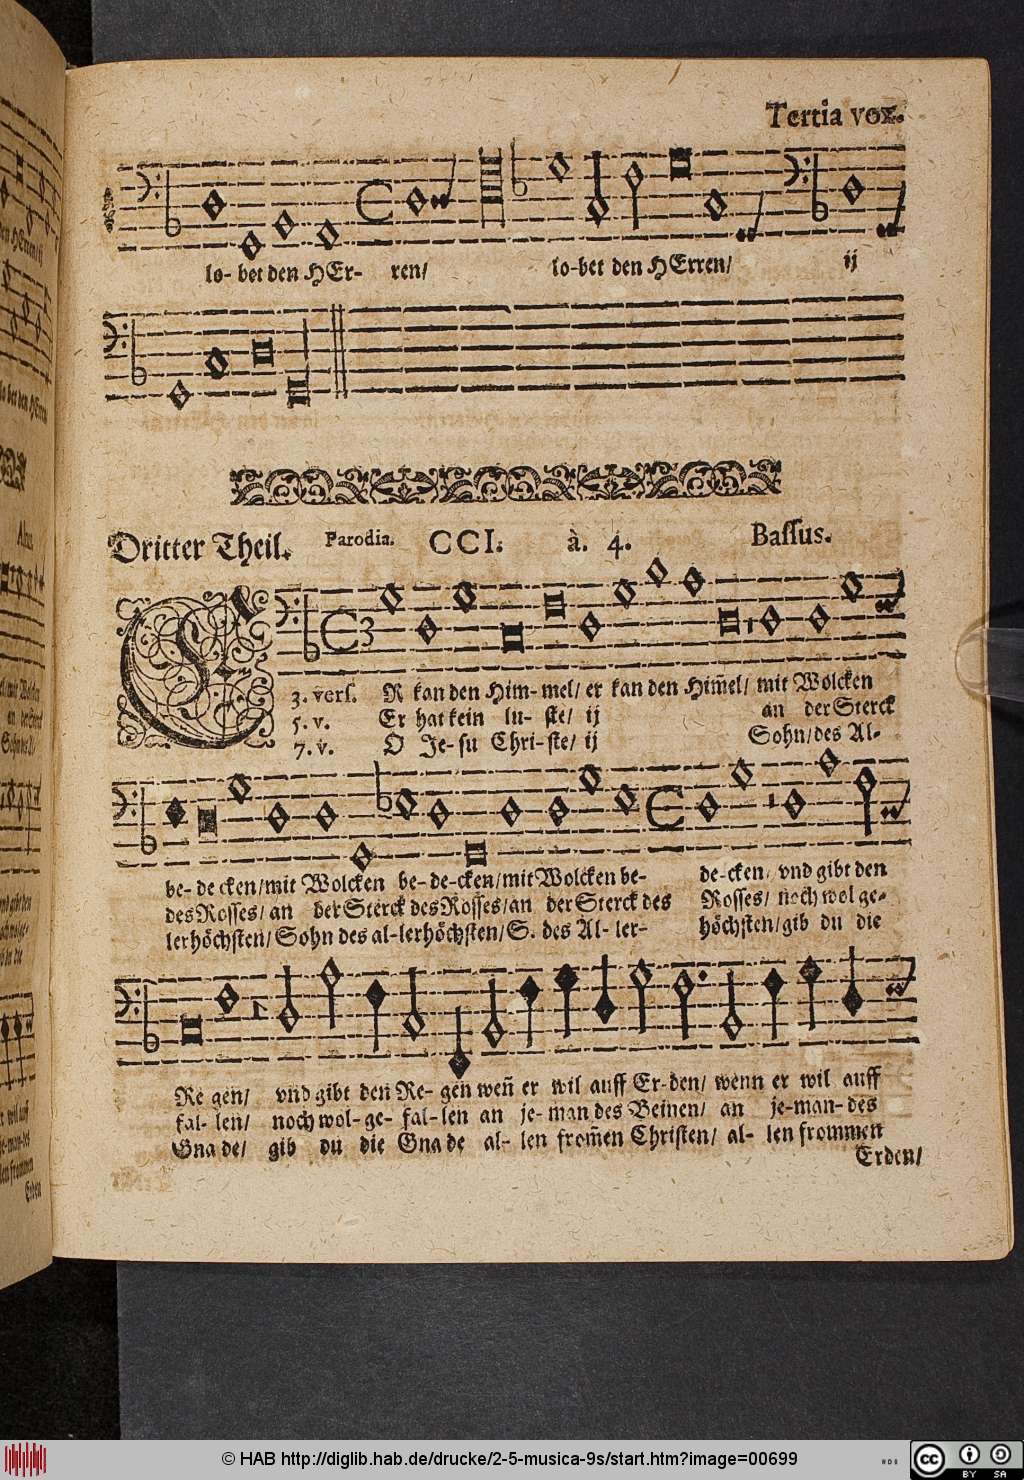 Tertia vox.
lo- bet den HErr- ren/ lo-bet den HErren/ ij
Dritter Theil. Parodia. CCI. à. 4. Bassus.
E
3. vers. R kan den Him- mel/ er kan den Him̄el/ mit Wolcken
5. v. Er hat kein lu- ste/ ij an der Sterck
7. v. O Je- su Chri- ste/ ij Sohn/ des Al-
be- de cken/ mit Wolcken be- de-cken/ mit Wolcken be- de-cken/ vnd gibt den
des Rosses/ an der Sterck des Rosses/ an der Sterck des Rosses/ noch wol ge-
lerhöchsten/ Sohn des al-lerhöchsten/ S. des Al- ler- höchsten/ gib du die
Re gen/ vnd gibt den Re- gen weñ er wil auff Er-den/ wenn er wil auff
fal- len/ noch wol- ge- fal- len an je- man des Beinen/ an je-man- des
Gna de/ gib du die Gna de al- len from̄en Christen/ al- len frommen
Erden/
© HAB http://diglib.hab.de/drucke/2-5-musica-9s/start.htm?image=00699
cc BY SA